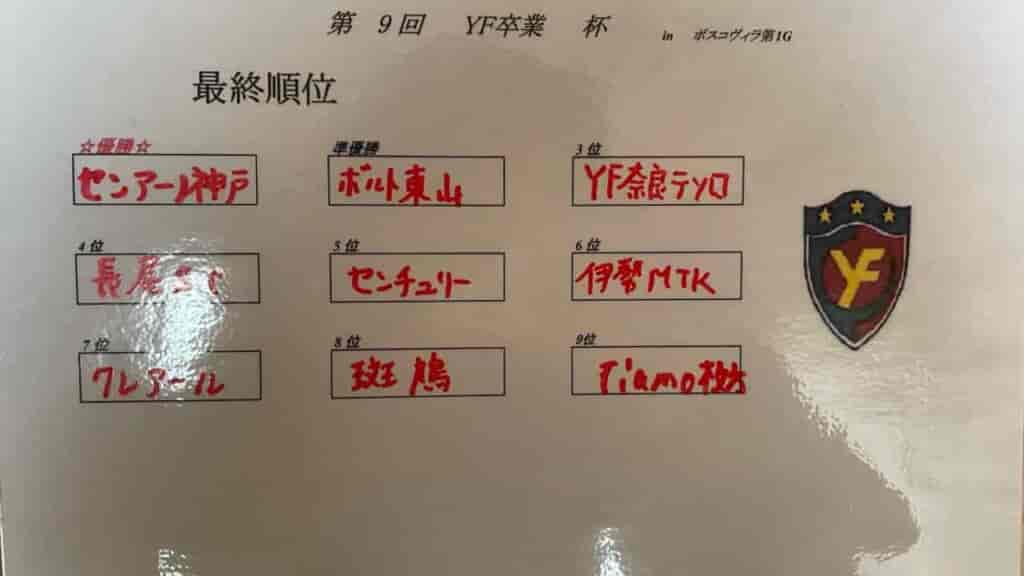 第 9回 YF卒業 杯 in ボスコヴィラ第1G
最終順位
☆優勝☆ 準優勝 3位
センアール神戸 ボルト東山 YF奈良テソロ
4位 5位 6位
長尾SC センチュリー 伊勢MTK
7位 8位 9位
クレアール 斑鳩 Tiamo枚方
YF